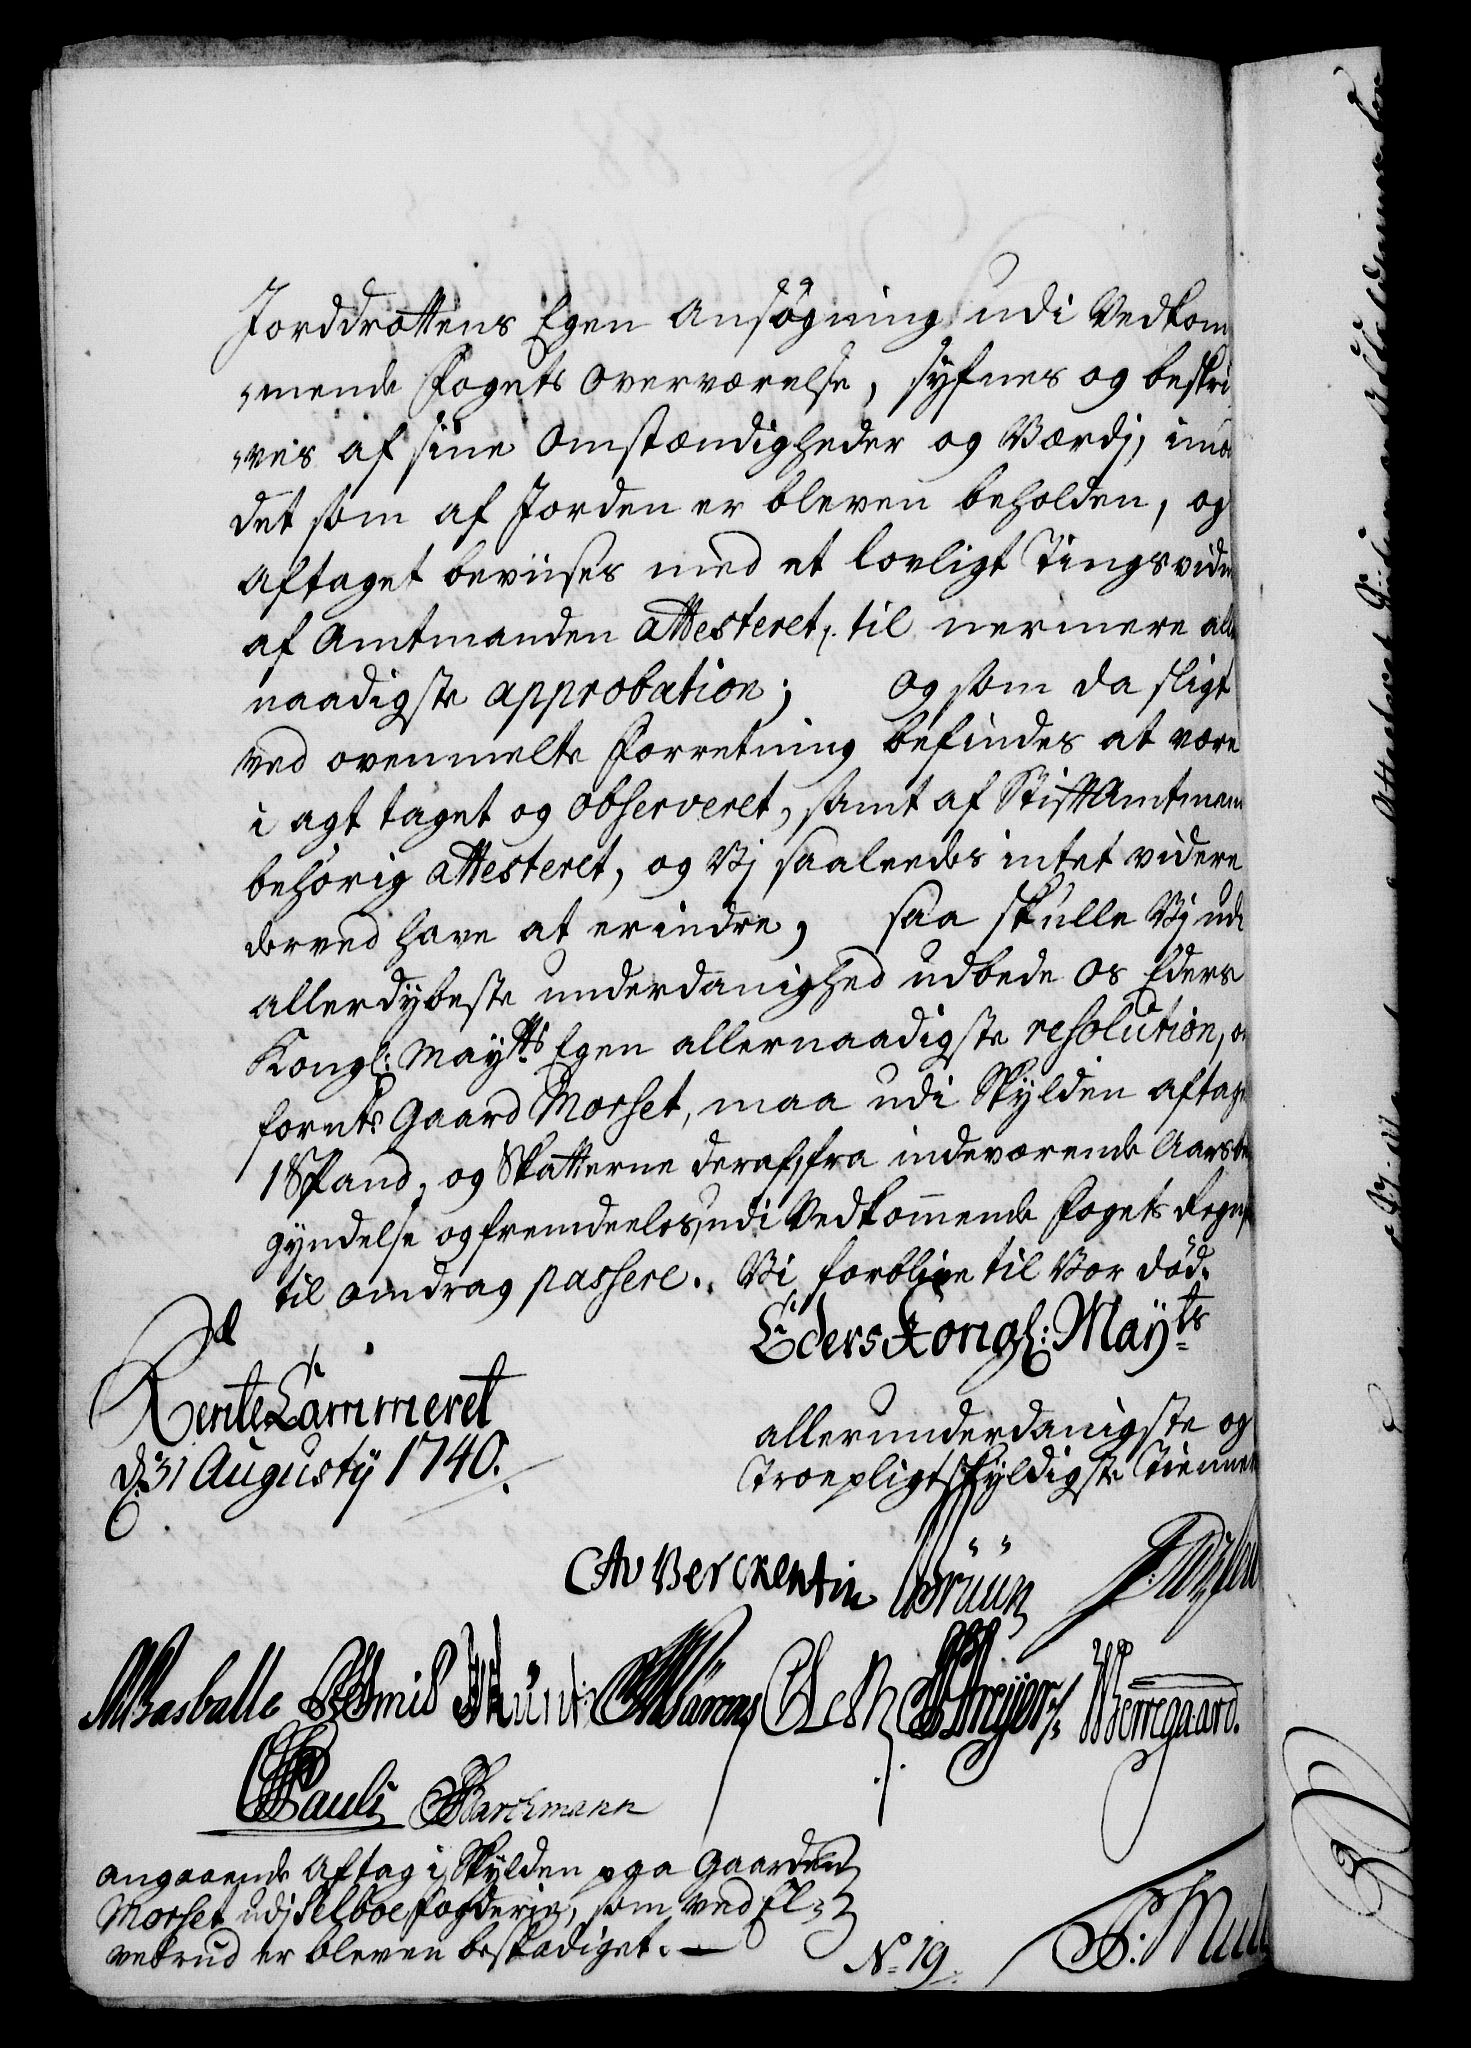 Jorddrottens Egen Ansøgning udi Vedkom
mende Fogets Overværelse, syfnes og beskri
ves af sine Omstændigheder og Værdj, imod
det som af Jorden er bleven beholden, og
Aftaget beviises med et lovligt Tingsvidne
af Amtmanden attesteret, til nermere aller
naadigste approbation; Og som da sligt
ved ovenmelte Forretning befindes at være
i agt taget og observeret, samt af StiftAmtmanden
behørig attesteret, og Vj saaleedes intet videre
derved have at erindre, saa skulle Vj udi
allerdybeste underdanighed udbede Os Eders
Kongl: Maytts Egen allernaadigste resolution, om
fornte Gaard Morset, maa udi Skylden aftages
1 Spand, og Skatterne deraf, fra indeværende Aars be
gyndelse og fremdeeles, udi Vedkommende Fogets Regnsk
til omdrag passere. Vi forblive til Vor død.
Eders Kongl: Mayts
RenteCammeret
d. 31 Augusty 1740.
allerunderdanigste og
Troepligtskyldigste Tienner
CAv Berckentin Brüün
Basballe
Herregaard.
Pauli Barchmann
angaaende Aftag i Skylden paa Gaarden
Morset udj Selboe Fogderie, som ved El
vebrud er bleven beskadiget.
No 19.